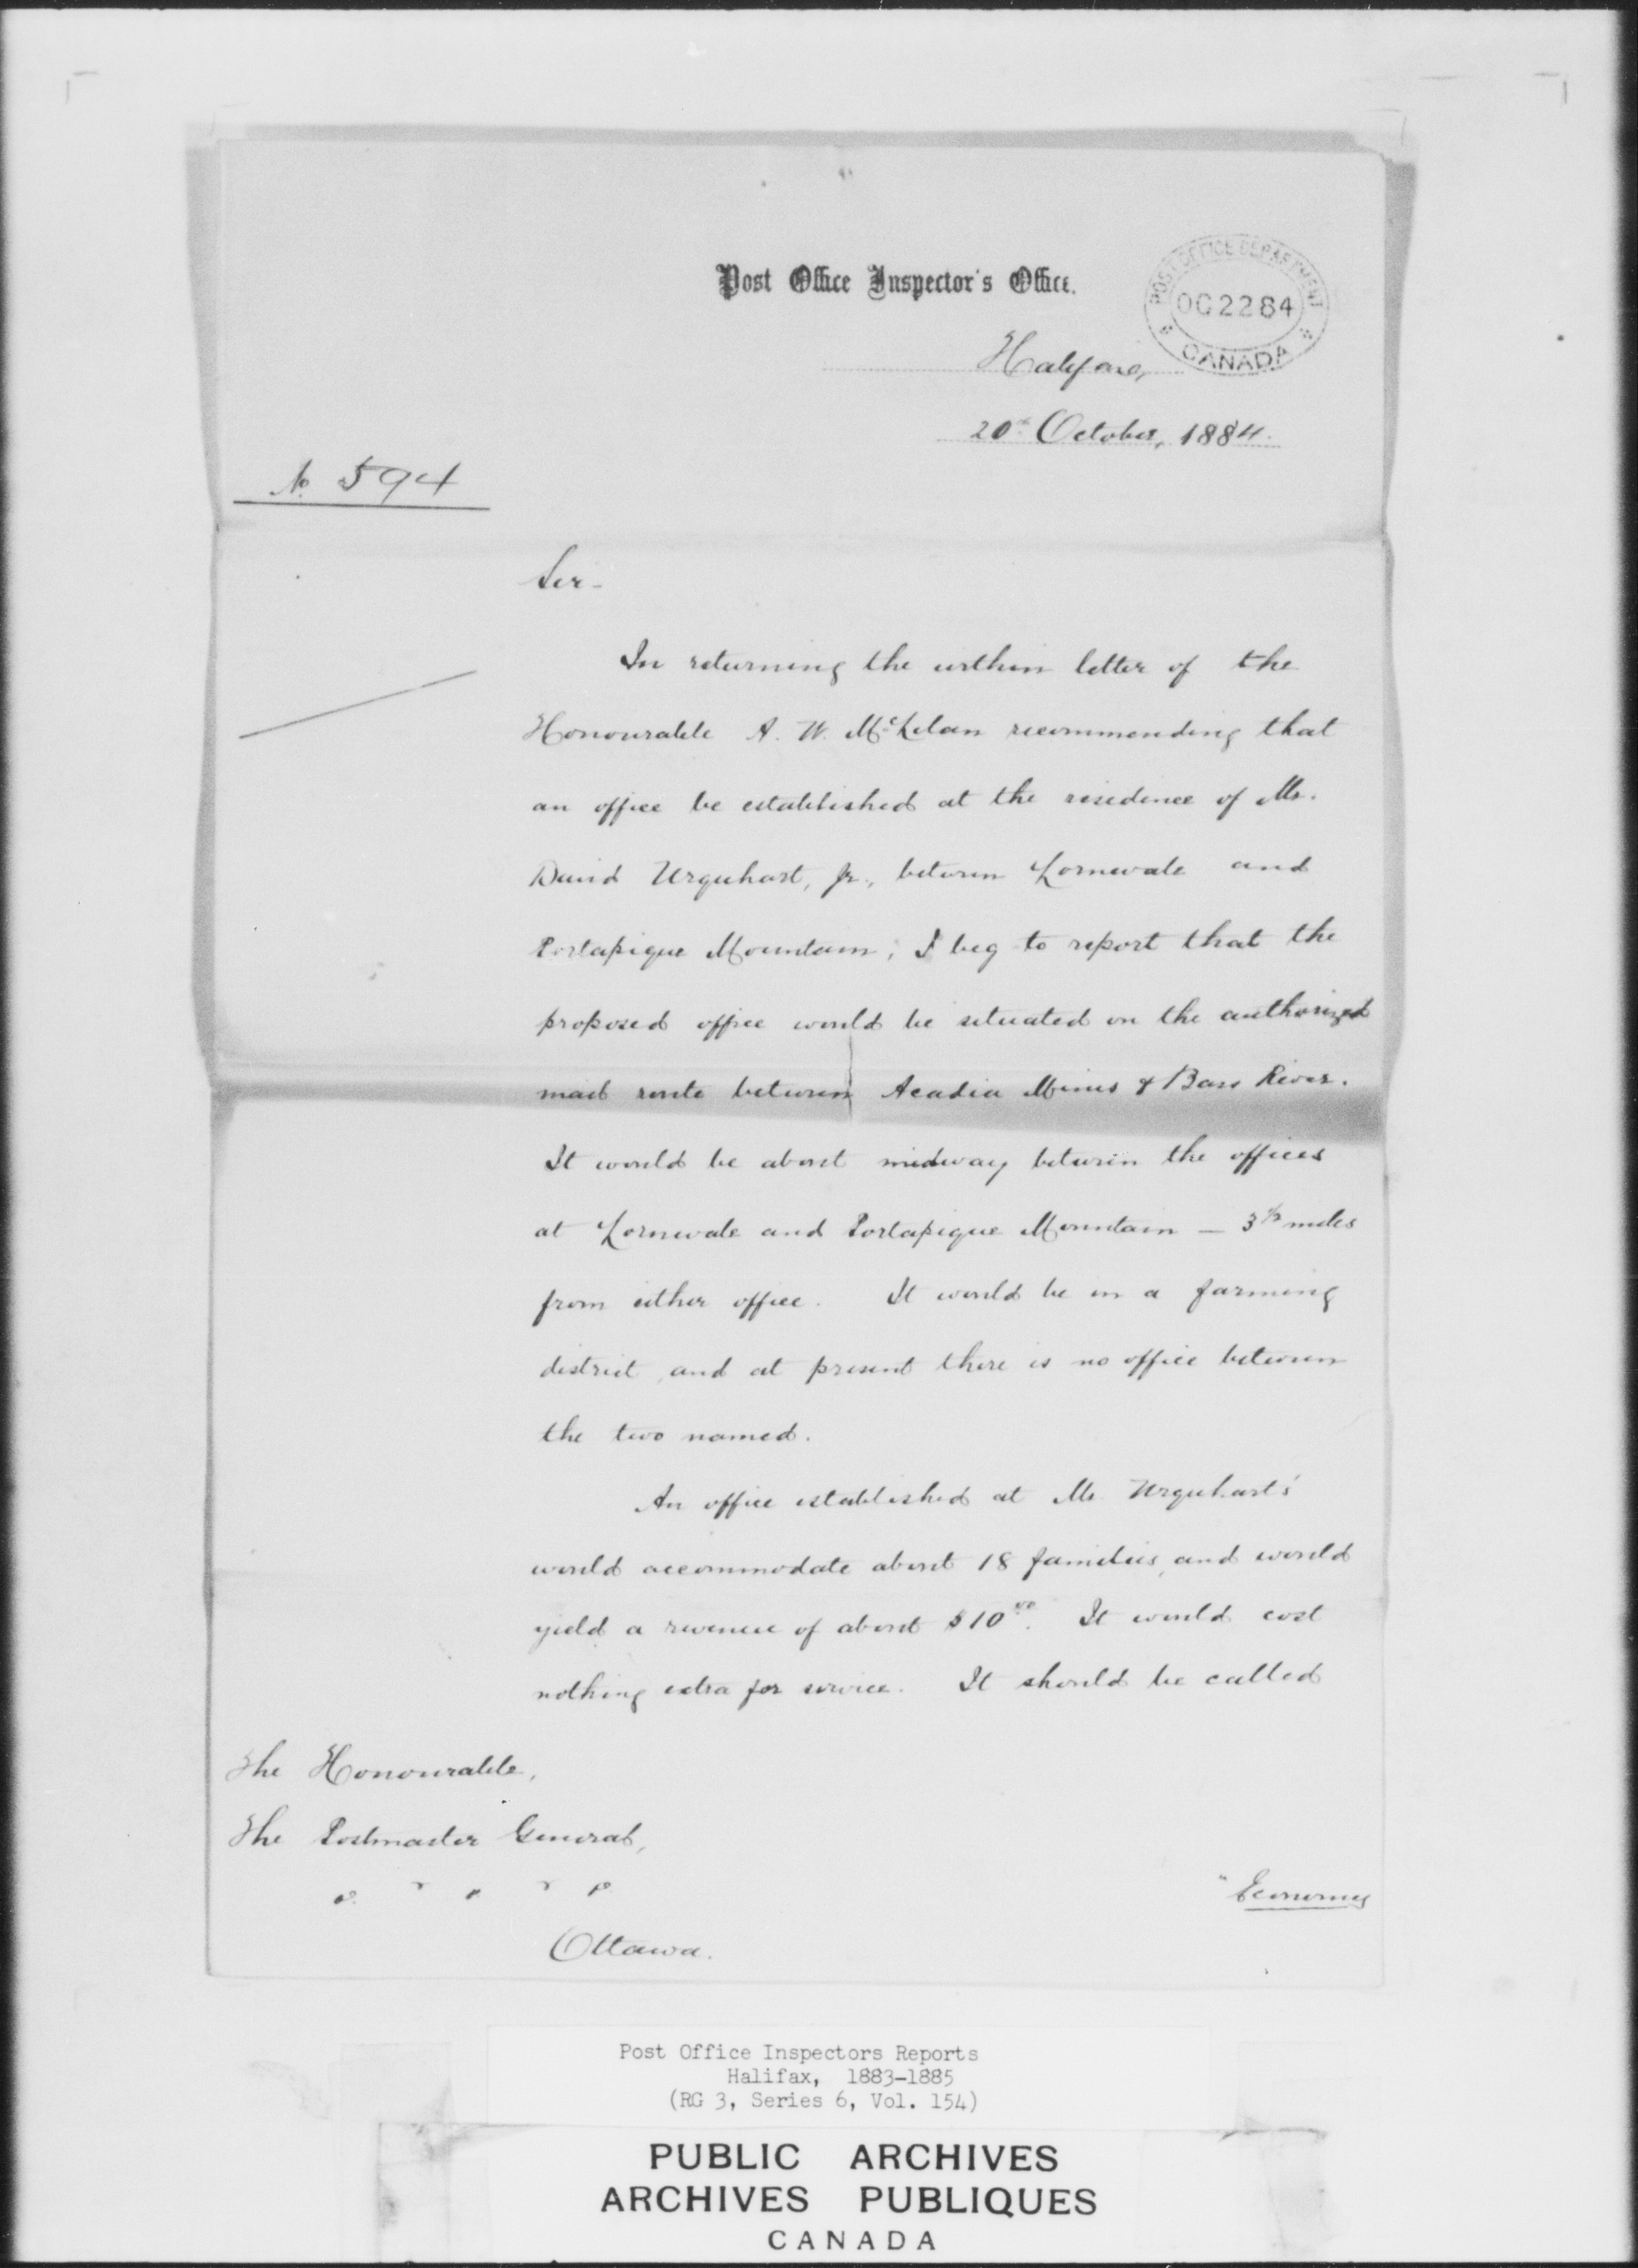 Post Office Inspector's Office.
POST OFFICE DEPARTMENT
OC 22 84
CANADA
Halifax,
20th October, 1884.
No. 594
Sir -
In returning the within letter of the
Honourable A. W. McLelan recommending that
an office be established at the residence of Mr.
David Urquhart, Jr., between Lornevale and
Portapique Mountain, I beg to report that the
proposed office would be situated on the authorized
mail route between Acadia Mines & Bass River.
It would be about midway between the offices
at Lornevale and Portapique Mountain — 3½ miles
from either office. It would be in a farming
district, and at present there is no office between
the two named.
An office established at Mr. Urquhart's
would accommodate about 18 families, and would
yield a revenue of about $10.00. It would cost
nothing extra for service. It should be called
The Honourable,
The Postmaster General,
" Economy
Ottawa.
Post Office Inspectors Reports
Halifax, 1883-1885
(RG 3, Series 6, Vol. 154)
PUBLIC ARCHIVES
ARCHIVES PUBLIQUES
CANADA